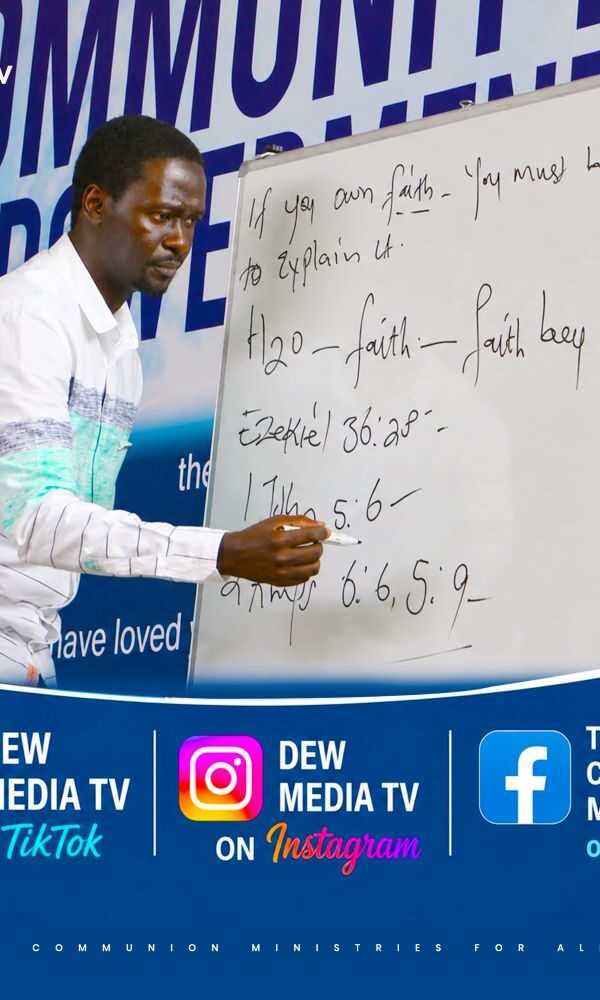 V
OMMUNIT
If you own faith - You must b
to Explain it.
H20 - faith - faith bey
Ezekiel 36:28-
the
1 John 5:6-
2 Kings 6:6, 5:9-
have loved
EW
MEDIA TV
TikTok
DEW
MEDIA TV
ON Instagram
f
T
C
M
O
COMMUNION MINISTRIES FOR AL